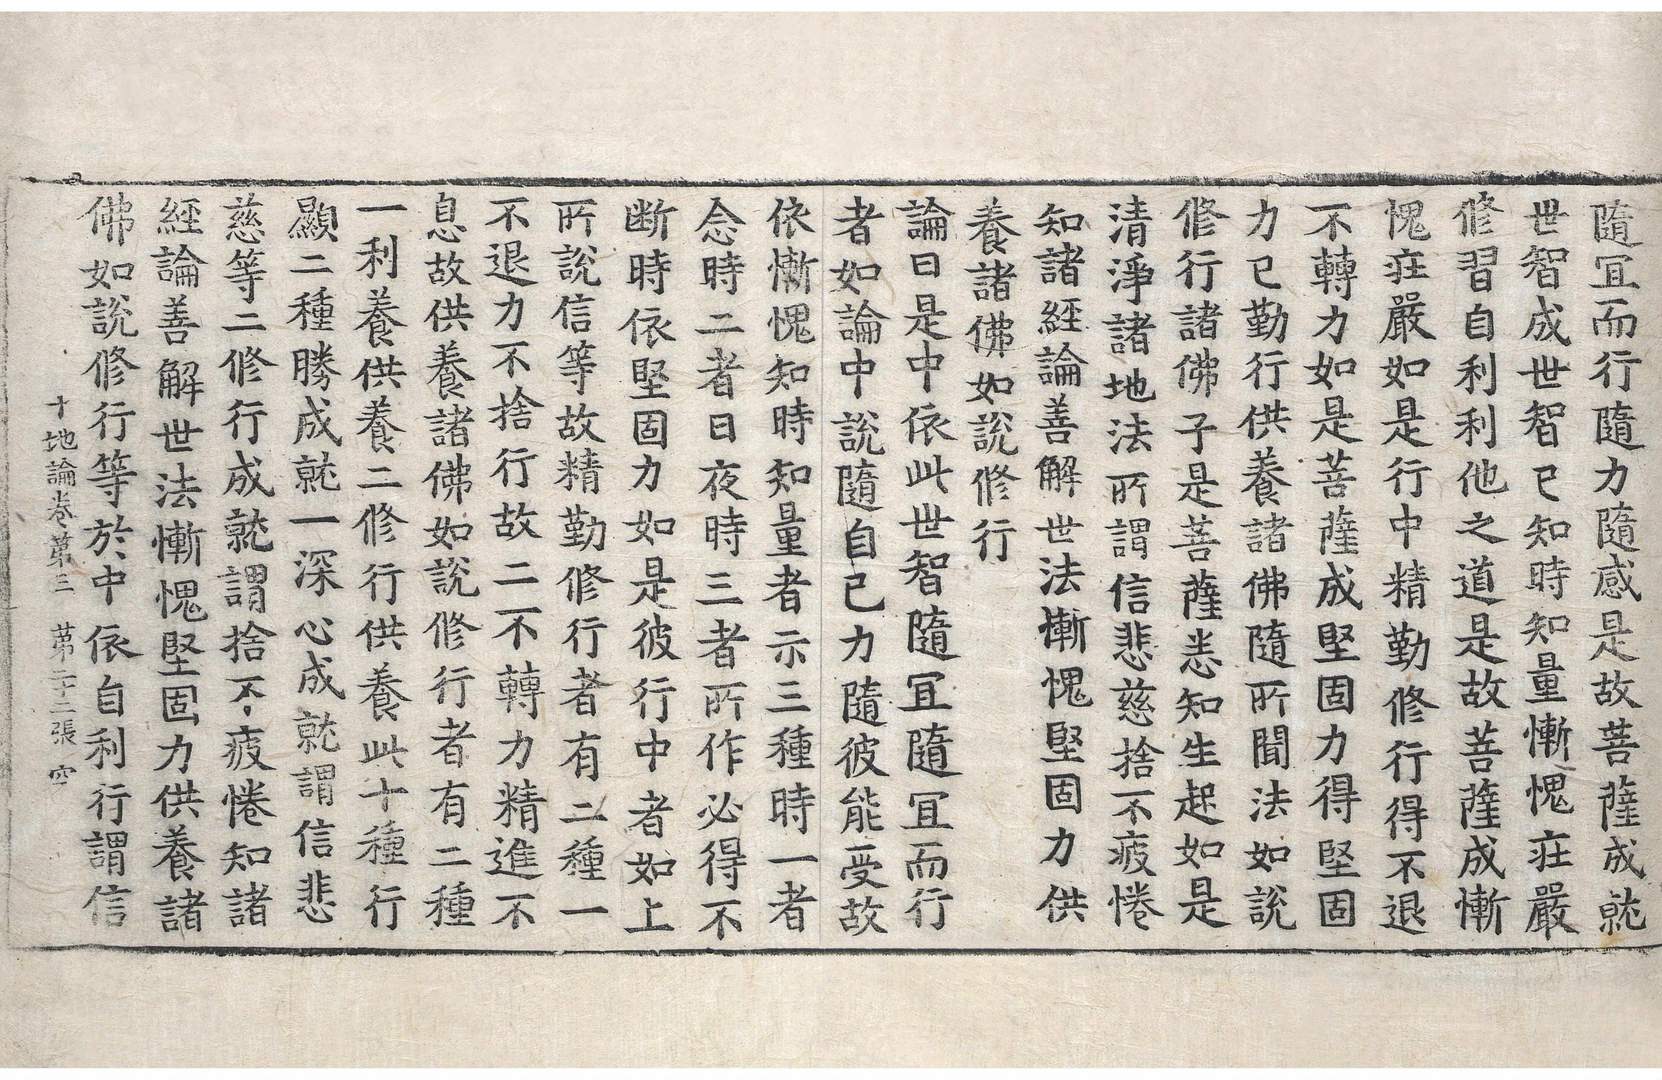 隨冝而行隨力隨感是故菩薩成就
世智成世智已知時知量慚愧莊嚴
修習自利利他之道是故菩薩成慚
愧莊嚴如是行中精勤修行得不退
不轉力如是菩薩成堅固力得堅固
力已勤行供養諸佛隨所聞法如說
修行諸佛子是菩薩悉知生起如是
清淨諸地法所謂信悲慈捨不疲惓
知諸經論善解世法慚愧堅固力供
養諸佛如說修行
論曰是中依此世智隨冝隨冝而行
者如論中說隨自己力隨彼能受故
依慚愧知時知量者示三種時一者
念時二者日夜時三者所作必得不
断時依堅固力如是彼行中者如上
所說信等故精勤修行者有二種一
不退力不捨行故二不轉力精進不
息故供養諸佛如說修行者有二種
一利養供養二修行供養此十種行
顯二種勝成就一深心成就謂信悲
慈等二修行成就謂捨不疲惓知諸
經論善解世法慚愧堅固力供養諸
佛如說修行等於中依自利行謂信
十地論卷第三 第二十二張 空